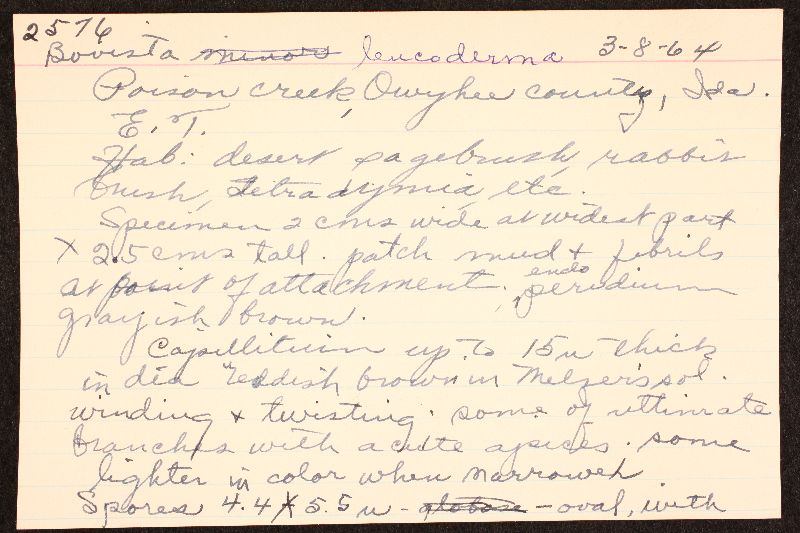 2576
Bovista minors leucoderma 3-8-64
Poison creek, Owyhee county, Ida.
E. T.
Hab: desert sagebrush, rabbit
brush, tetradymia, etc.
Specimen 2 cms wide at widest part
X 2.5 cms tall. patch mud + fibrils
at point of attachment. endo
, peridium
grayish brown.
Capillitium up to 15 u thick
in dia reddish brown in Melzer's sol.
winding & twisting. some of ultimate
branches with acute apices. some
lighter in color when narrower
Spores 4.4 X 5.5 u - globose - oval, with